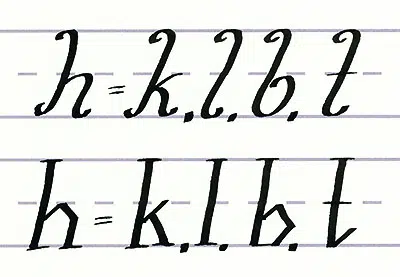 h = k.l.b.t
h = k.l.b.t